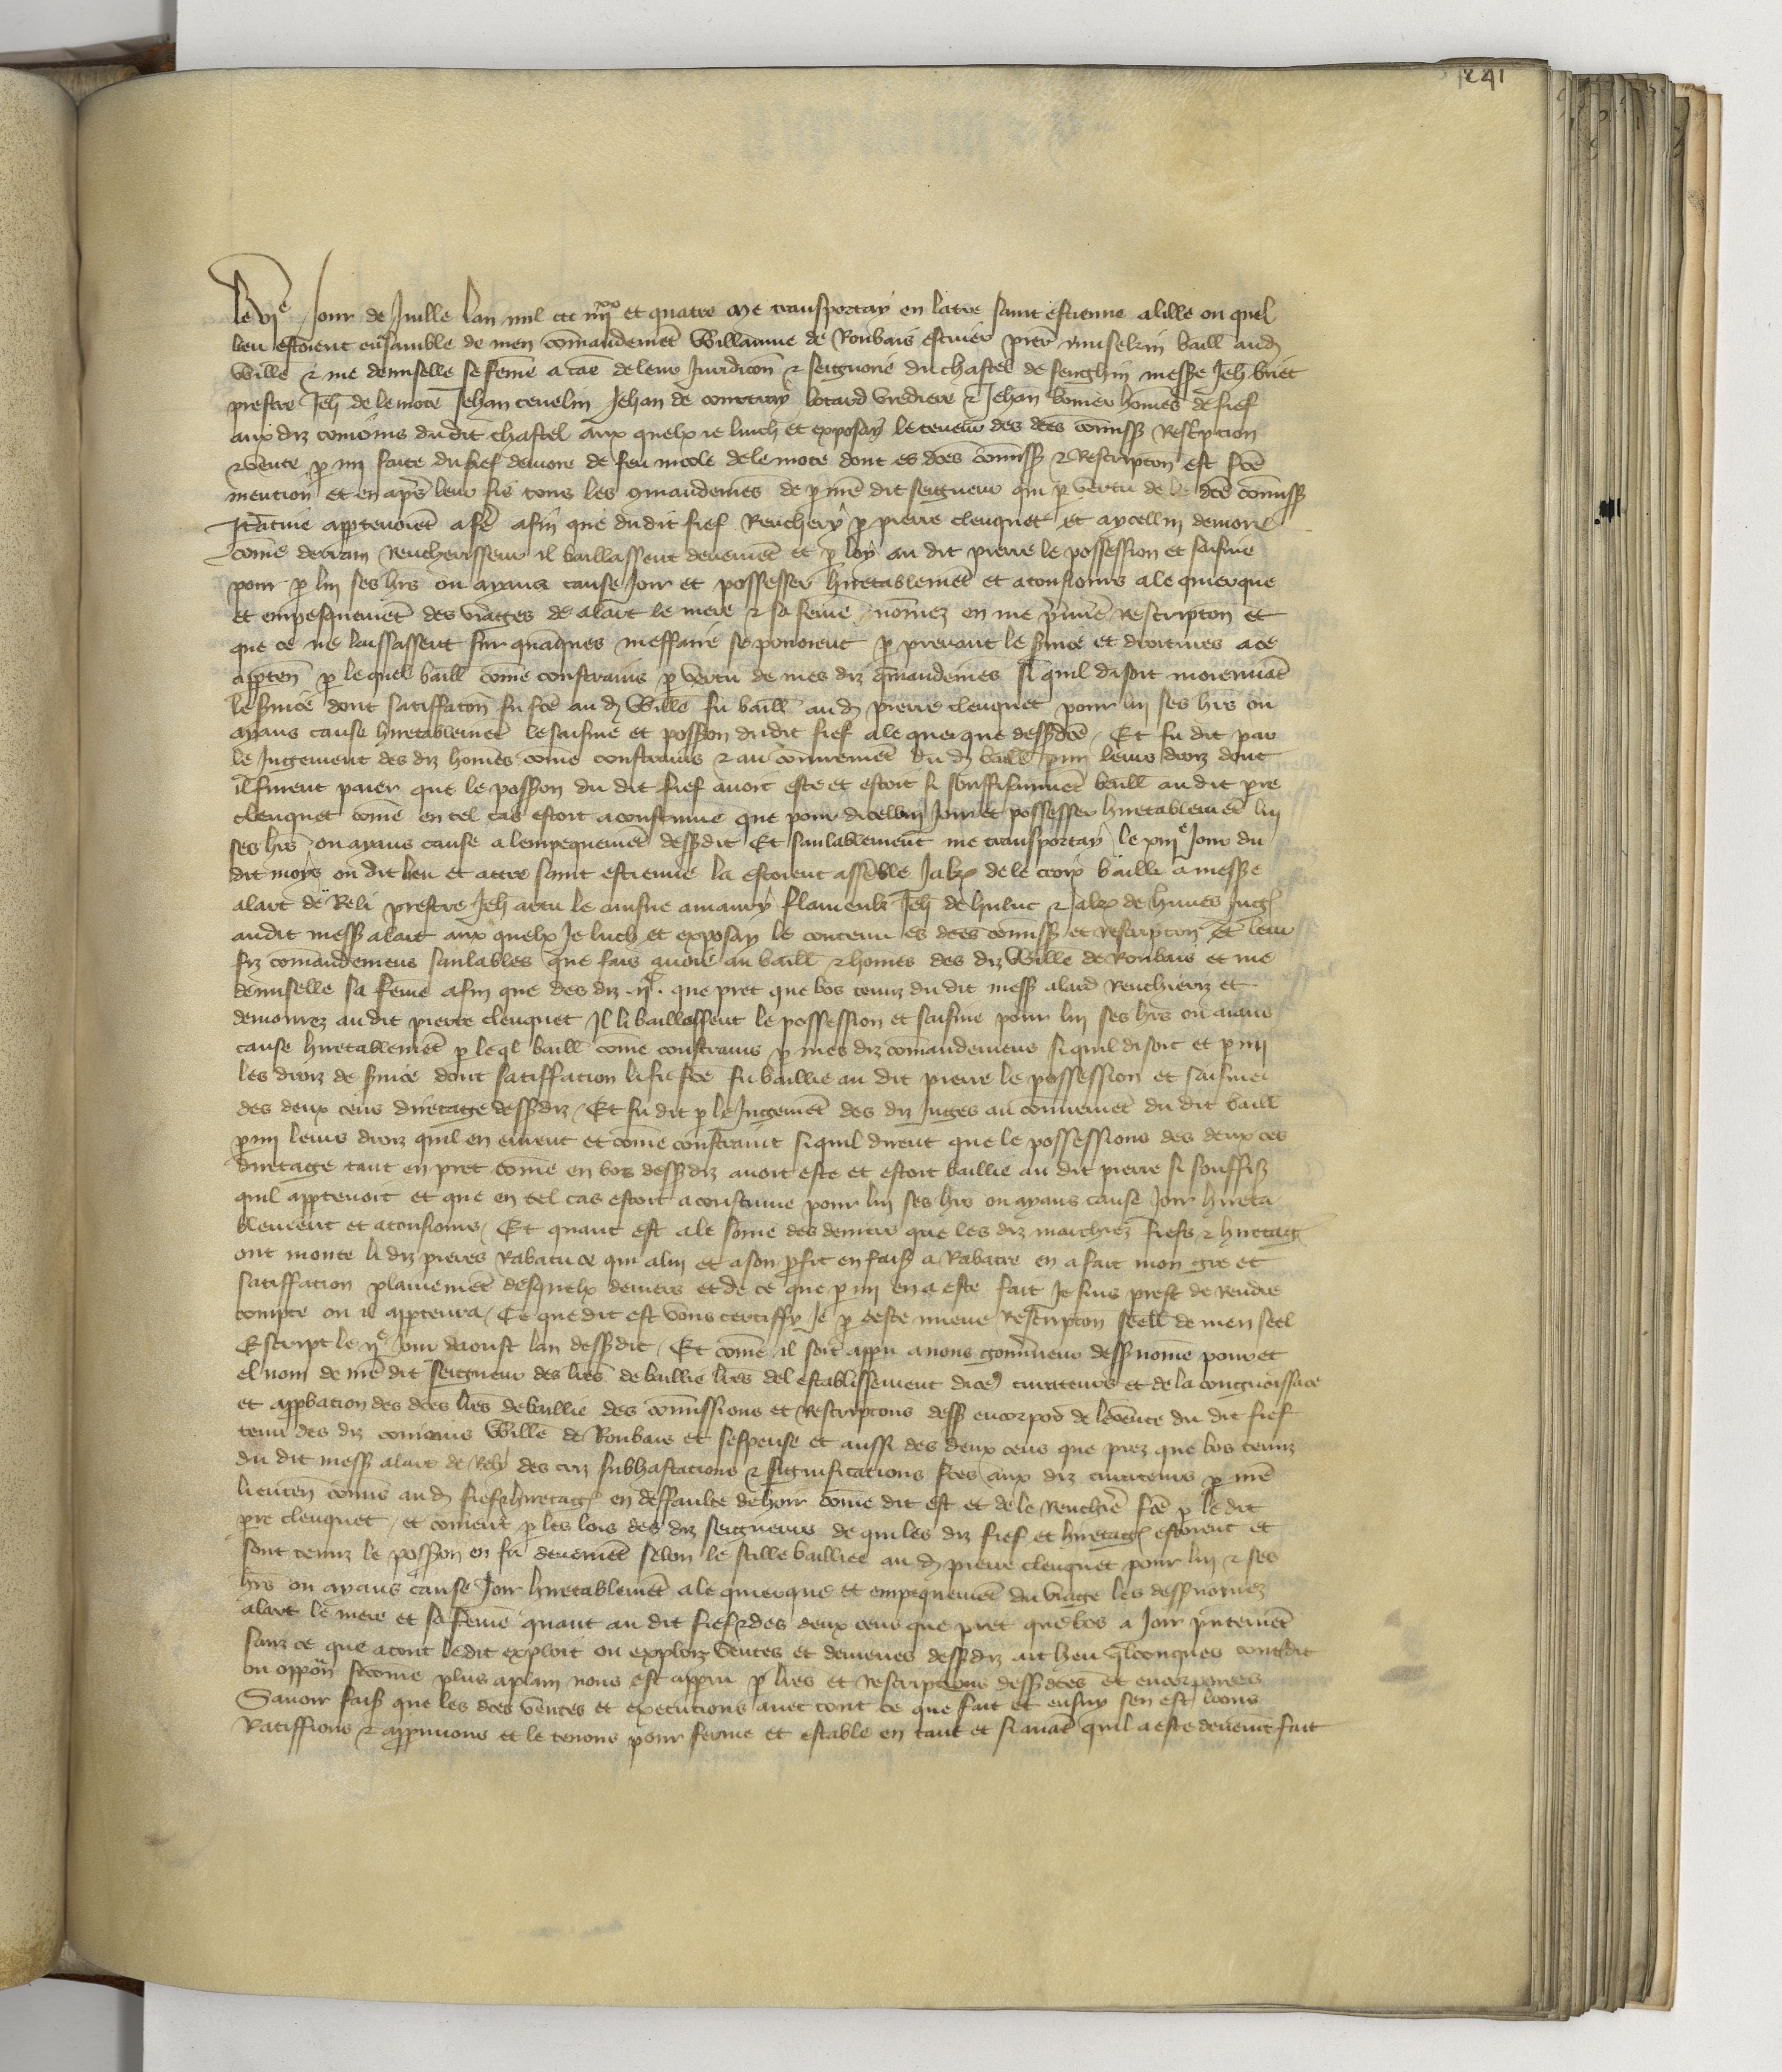 241
le vje Jour de Juille lan mil ccc iiijxx et quatre me transportay en latre saint estienne a lille ou quel
lieu estoient ensamble de men cōmandemēt Willaume de Roubais escuier baill aud
Wille & me demiselle se feme a cāe de leur Juridicōn & seignorie du chastel de senghin messe Jeh briet
prestre Jeh de le mote Jehan tenelin Jehan de courtray lotard & Jehan homes de fief
aux diz conioins du dit chastel aux quelx ie luich et exposay le teneur des dces cōmiss Rescription
& vente p mi faite du fief demore de feu nicole de le mote dont es dces cōmiss & Rescripton est fce
mention et en aps leur fis tous les cōmandemēs de p mē dit seigneur qui p vertu de le dce cōmiss
apptenoiēt a fe afin que du dit fief Renchery p pierre clenquet et a ycelli demore
come derrain Rencherisseur il baillassent deuemēt et p loy au dit pierre le possession et saisine
pour p lui ses hrs ou ayans cause Joir et possesser hiretablemēt et a tousiours a le quierque
et empesquemēt des viages de alart le mere & sa feme nomez en me Rescripton et
que ce ne laissassent sur quāques meffaire se pouoient p prenant le suice et droitures a ce
apptēn p le quel baill come constrains p vertu de mes diz cōmandemēs si quil disoit moiennāt
le suice dont satiffacōn fu fce au d Wille fu baill au d pierre clenquet pour lui ses hrs ou
ayans cause hiretablemēt le saisine et possion du dit fief a le querque dessdce Et fu dit par
le Jugement des diz homes come constrains & au cōniremēt du d baill p mi leurs droiz dont
il furent paier que le possion du dit fief auoit este et estoit si souffisanmēt baill au dit pre
clenquet come en tel cas estoit acoustume que pour dicelluy Joir et possesser hiretablemēt lui
ses hrs ou ayans cause a lempequemēt dessdit Et sanlablement me transportay le xiije Jour du
dit moys ou dit lieu et attre saint estienne la estoient assēble Jakes de le croix bailli a messe
alart de Reli prestre Jeh artu le amaury flamenk Jeh de huluc & Jakes de Juges
au dit mess alart aux quelx Je luich et exposay le contenu es dces cōmiss et Rescripton et leur
fiz comandemens sanlables que fais auoie au baill & homes des diz Wille de Roubais et me
demiselle sa feme afin que des diz ijc que pret que bos tenuz du dit mess alard Renchieriz et
demourez au dit pierre clenquet Il li baillassent le possession et saisine pour lui ses hrs ou aians
cause hiretablemēt p le ql baill come constrains p mes diz comandemens si quil disoit et p mi
les droiz de suice dont satiffation li fu fce fu baillie au dit pierre le possession et saisine
des deux cens diretage dessdiz Et fu dit p le Jugemēt des diz Juges au cōniremēt du dit baill
p mi leurs droiz quil en eurent et come constraint si quil dirent que le possessions des deux ces
diretage tant en pret come en bos dessdiz auoit este et estoit baillie au dit pierre si souffiss
quil apptenoit et que en tel cas estoit acoustume pour lui ses hrs ou ayans cause Joir hireta
blement et a tousiours Et quant est a le some des deniers que les diz marchiez fiefs & hiretages
ont monte li diz pieres Rabatu ce qui a lui et a son pfit en faiss a Rabatre en a fait mon gre et
satiffation plainemēt desquelx deniers et de ce que p mi en a este fait Je suis prest de Rendre
compte ou il apptenra Ce que dit est vous certiffy Je p ceste miene Rescripton seell de men seel
Escript le ije Jour daoust lan dessdit Et come il soit appu a nous gouūneur dess nome pour et
el nom de mē dit seigneur des lres de baillie lres del establissement dices curateurs et de la congnoissāce
et appbation des dces lres de baillie des cōmissions et Rescriptons dess encorpod de le vente du dit fief
tenu des diz conioins Wille de Roubais et sespeuse et aussi des deux cens que prez que bos tenuz
du dit mess alart de Rely des criz subhastacions & significations fces aux diz curateurs p mē
lieuten cōmis au d fief & hiretages en deffaulte de hoir come dit est et de le Renchiē fce p le dit
pre clenquet et coment p les lois des diz seigneurs de qui les diz fief et hiretages estoient et
sont tenuz le possion en fu deuemēt selon le stille bailliee au d pierre clenquet pour lui & ses
hrs ou ayans cause Joir hiretablemēt a le quierque et empequemēt du viage les dess nomez
alart le mere et sa feme quant au dit fief & des deux cens que pret que bos a Joir pntemēt
sanz ce que a tout le dit exploit ou exploiz ventes et demenes dessdiz ait heu qlconques contdit
ou oppōn se come plus aplain nous est appu p lres et Rescriptions dessdces et encorporees
Sauoir faiss que les dces ventes et executions auec tout ce que fait et ensuy sen est loons
Ratiffions & appuuons et le tenons pour ferme et estable en tant et si auāt quil a este deuemēt fait